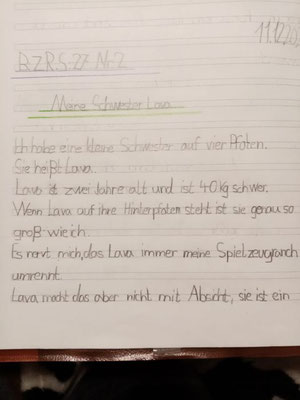 11.12.
B.Z.R.S.27 Nr.2
Meine Schwester Lava
Ich habe eine kleine Schwester auf vier Pfoten.
Sie heißt Lava.
Lava ist zwei Jahre alt und ist 40 kg schwer.
Wenn Lava auf ihre Hinterpfoten steht ist sie genau so
groß wie ich.
Es nervt mich, das Lava immer meine
umrennt.
Lava macht das aber nicht mit Absicht, sie ist ein